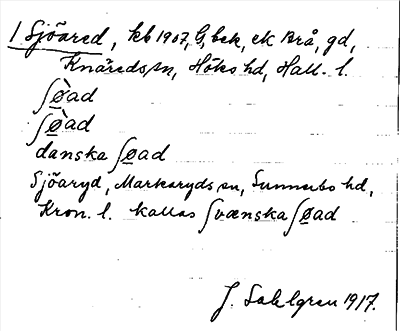 1 Sjöared, kb 1907, G, bek, ek Brå, gd,
Knäreds sn, Höks hd, Hall. l.
ʃø̀ad
ʃø̀ad
danska ʃøad
Sjöaryd, Markaryds sn, Sunnerbo hd,
Kron. l. kallas ʃvænska ʃøad
J. Sahlgren 1917.